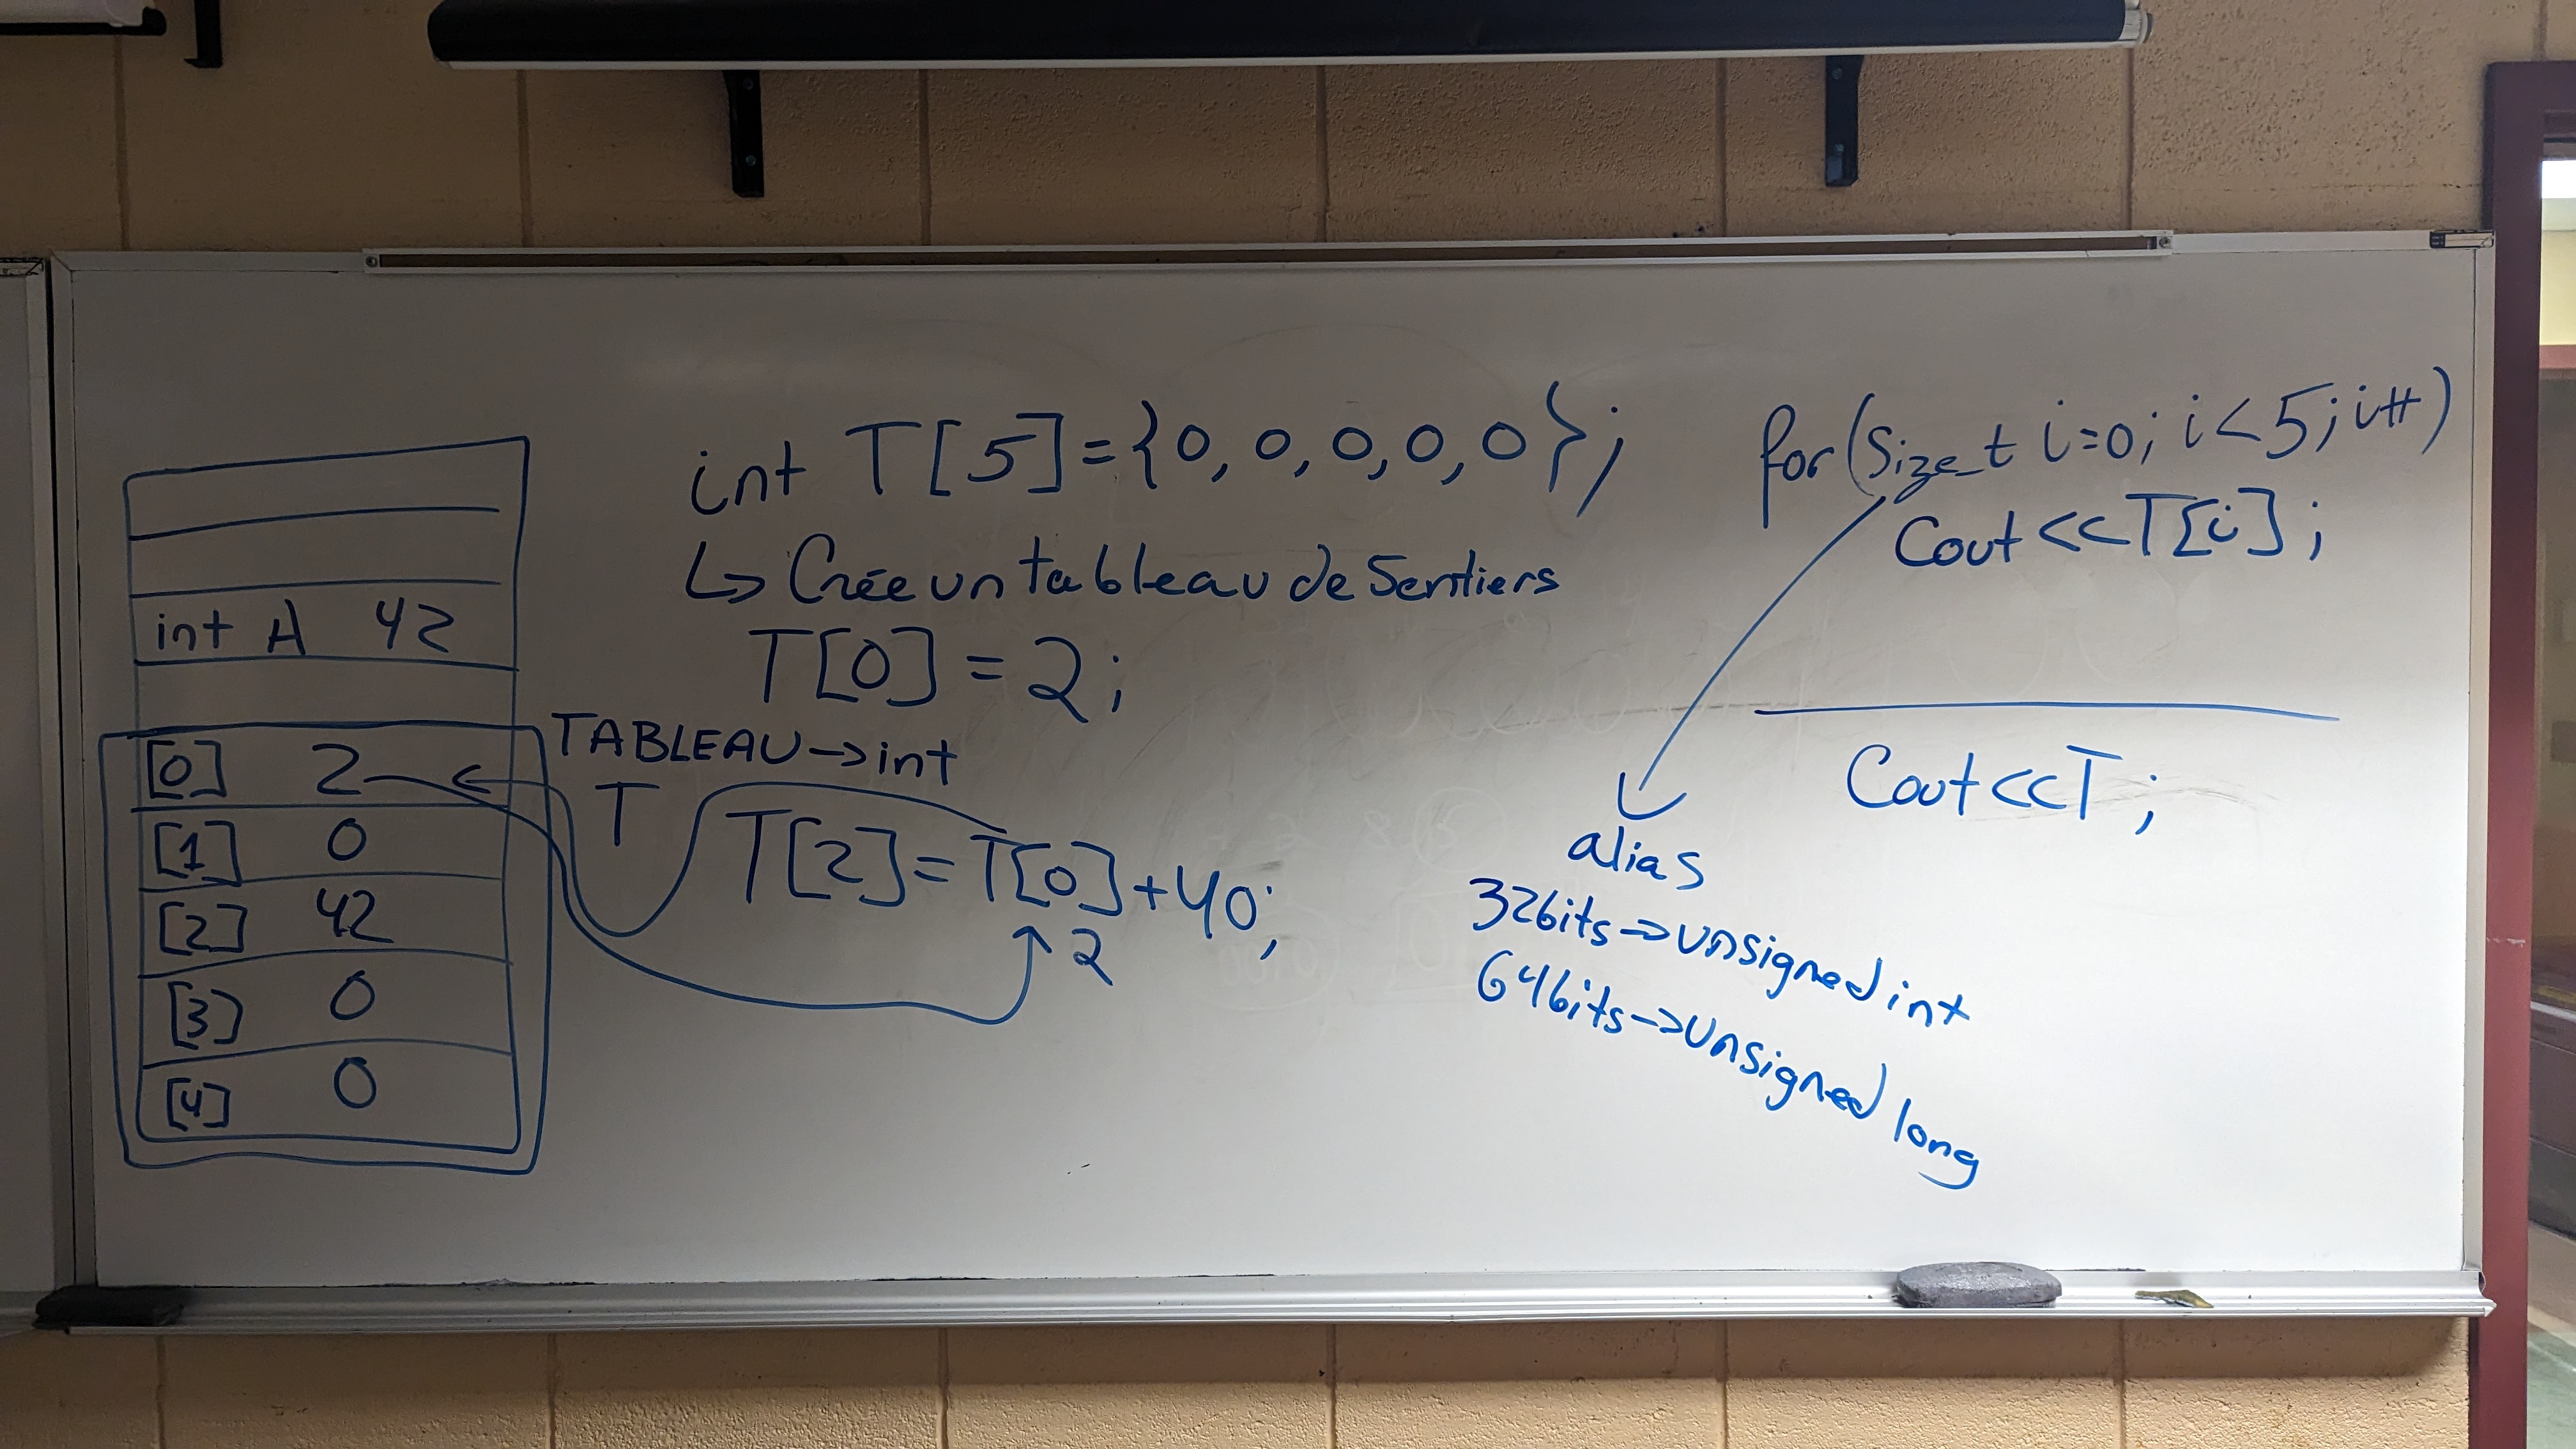 int A 42
[0] 2
[1] 0
[2] 42
[3] 0
[4] 0
int T[5]={0,0,0,0,0};
↳ Crée un tableau de 5 entiers
T[0]=2;
TABLEAU→int
T
T[2]=T[0]+40;
2
for(size_t i=0; i<5; i++)
Cout<<T[i];
Cout<<T;
alias
32bits→unsigned int
64bits→unsigned long